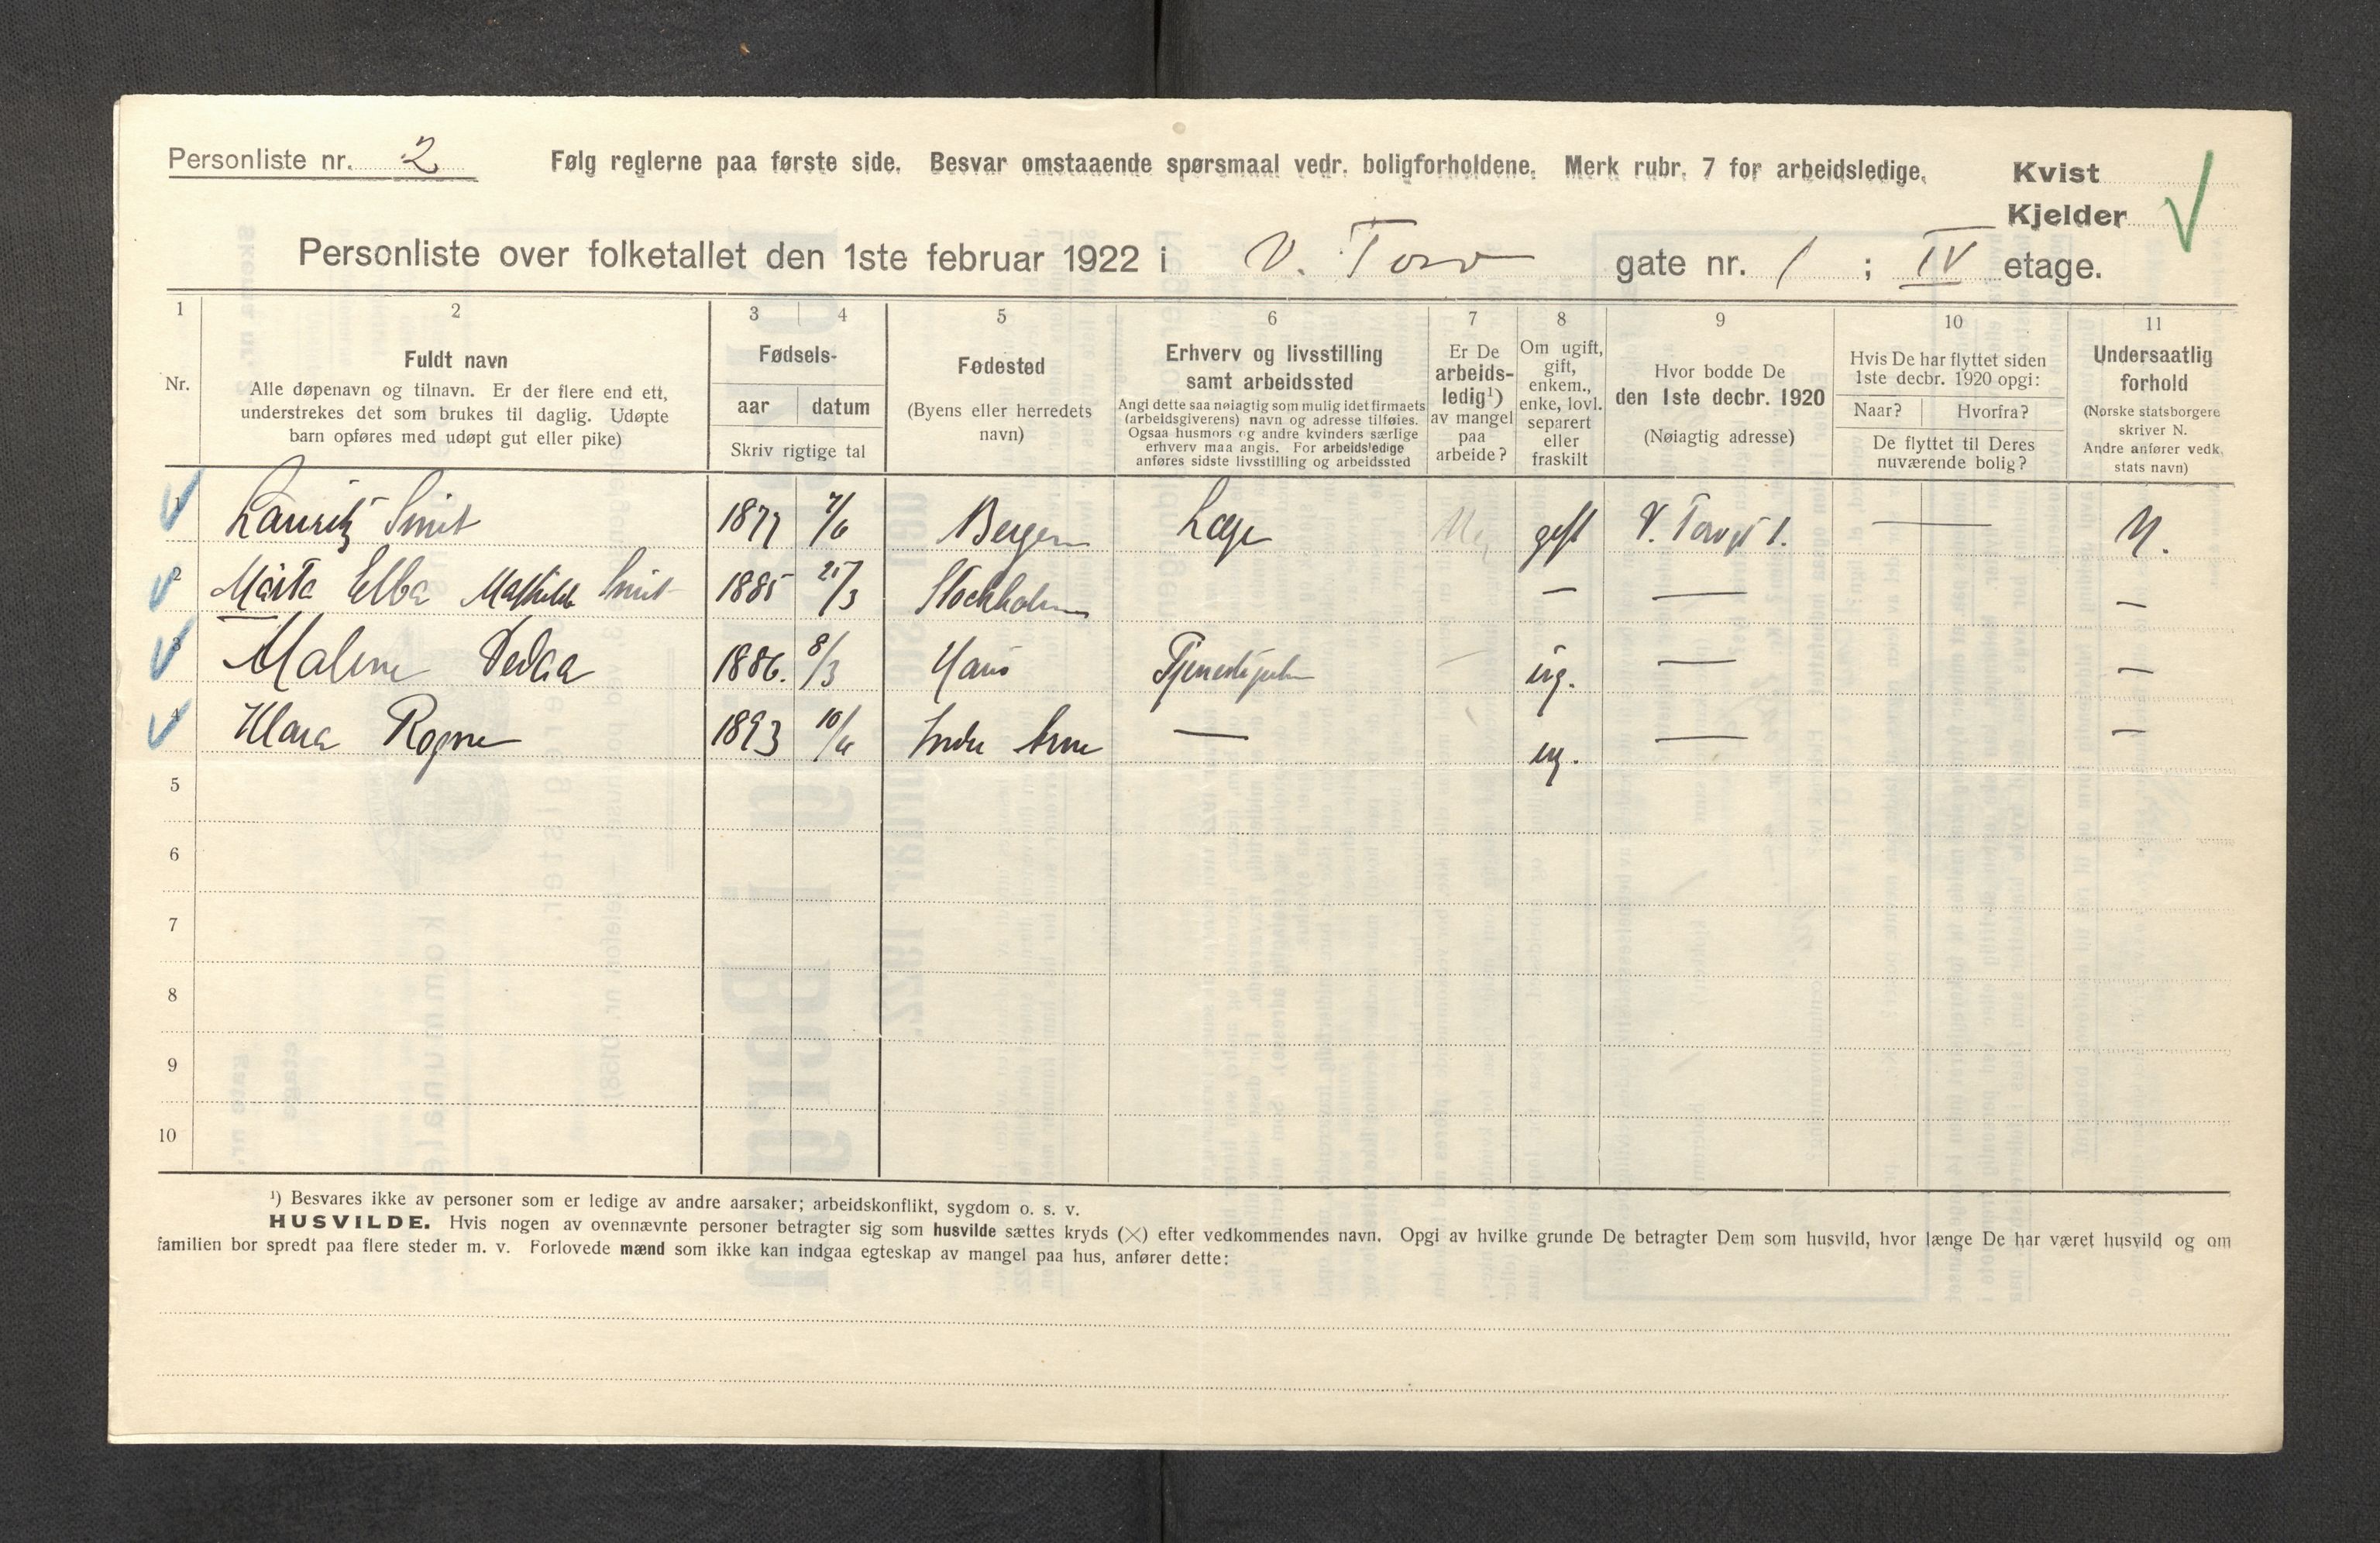 Personliste nr. 2 Følg reglerne paa første side. Besvar omstaaende spørsmaal vedr. boligforholdene. Merk rubr. 7 for arbeidsledige. Kvist
Kjelder
Personliste over folketallet den 1ste februar 1922 i V. Torv gate nr. 1 ; IV etage.
1 2 3 4 5 6 7 8 9 10 11
Nr.
Fuldt navn
Alle døpenavn og tilnavn. Er der flere end ett,
understrekes det som brukes til daglig. Udøpte
barn opføres med udøpt gut eller pike)
Fødsels-
aar datum
Skriv rigtige tal
Fødested
(Byens eller herredets
navn)
Erhverv og livsstilling
samt arbeidssted
Angi dette saa nøiagtig som mulig idet firmaets
(arbeidsgiverens) navn og adresse tilføies.
Ogsaa husmors og andre kvinders særlige
erhverv maa angis. For arbeidsledige
anføres sidste livsstilling og arbeidssted
Er De
arbeids-
ledig¹)
av mangel
paa
arbeide?
Om ugift,
gift,
enkem.,
enke, lovl.
separert
eller
fraskilt
Hvor bodde De
den 1ste decbr. 1920
(Nøiagtig adresse)
Hvis De har flyttet siden
1ste decbr. 1920 opgi:
Naar? Hvorfra?
De flyttet til Deres
nuværende bolig?
Undersaatlig
forhold
(Norske statsborgere
skriver N.
Andre anfører vedk.
stats navn)
1 Lauritz Smit 1877 7/6 Bergen Læge gift V. Torvgt 1. — N.
2 Märta Ebba Mathilde Smit 1885 25/3 Stockholm — — —
3 Malene Vedaa 1886. 8/3 Hans Tjenestepike — ug. — —
4 Klara Rogne 1893 10/6 Indre Arne — ug. — —
5
6
7
8
9
10
¹) Besvares ikke av personer som er ledige av andre aarsaker; arbeidskonflikt, sygdom o. s. v.
HUSVILDE. Hvis nogen av ovennævnte personer betragter sig som husvilde sættes kryds (×) efter vedkommendes navn. Opgi av hvilke grunde De betragter Dem som husvild, hvor længe De har været husvild og om
familien bor spredt paa flere steder m. v. Forlovede mænd som ikke kan indgaa egteskap av mangel paa hus, anfører dette: